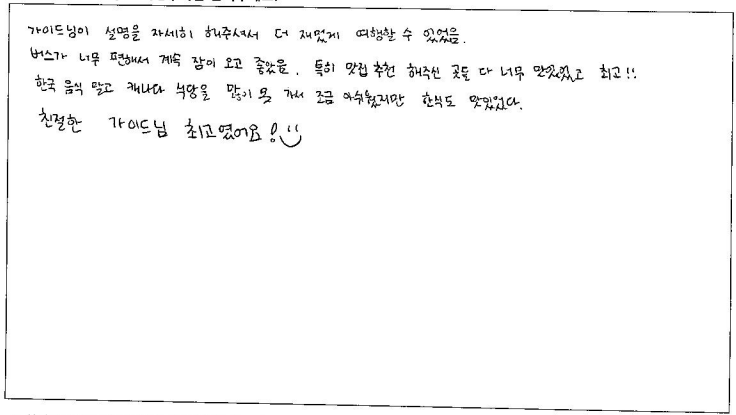 가이드님이 설명을 자세히 해주셔서 더 재밌게 여행할 수 있었음.
버스가 너무 편해서 계속 잠이 오고 좋았음. 특히 맛집 추천 해주신 곳들 다 너무 맛있었고 최고!!
한국 음식 말고 캐나다 식당을 많이 못 가서 조금 아쉬웠지만 한식도 맛있었다.
친절한 가이드님 최고였어요!